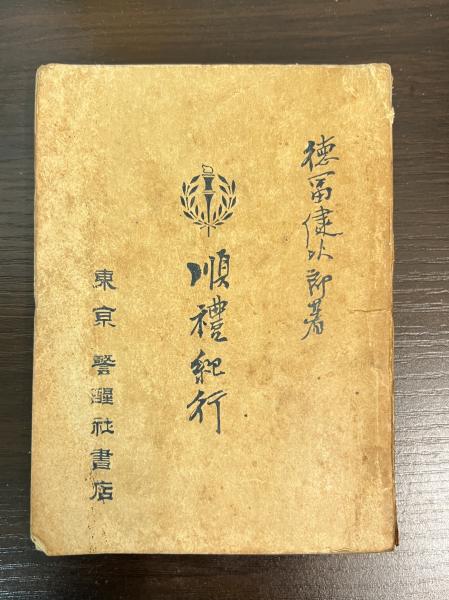 徳冨健次郎著
順禮紀行
東京 警醒社書店